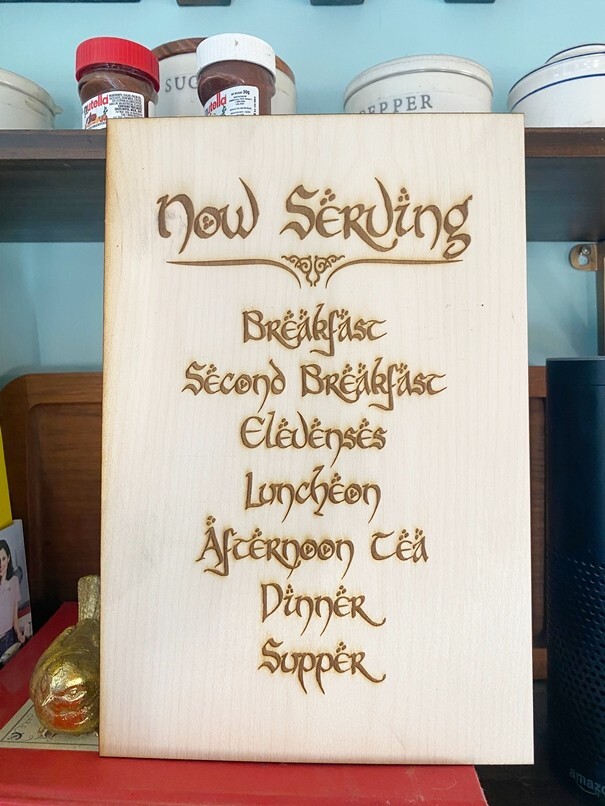 nutella
nutella
30g
SUG
PEPPER
Now Serving
Breakfast
Second Breakfast
Elevenses
Luncheon
Afternoon Tea
Dinner
Supper
amazo